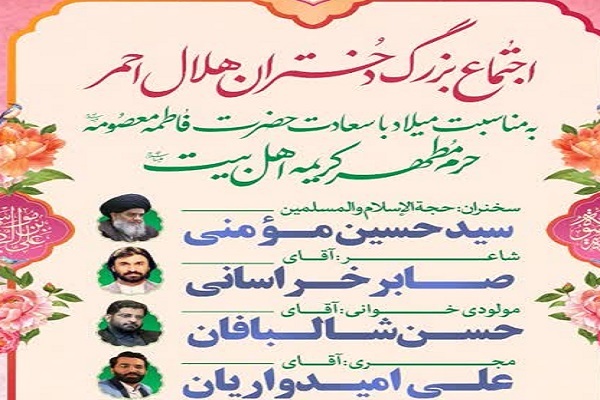 اجتماع بزرگ دختران هلال احمر
به مناسبت میلاد با سعادت حضرت فاطمه معصومه
حرم مطهر کریمه اهل بیت
سخنران: حجة الإسلام والمسلمین
سید حسین مؤمنی
شاعر: آقای
صابر خراسانی
مولودی خوانی: آقای
حسن شالبافان
مجری: آقای
علی امیدواریان